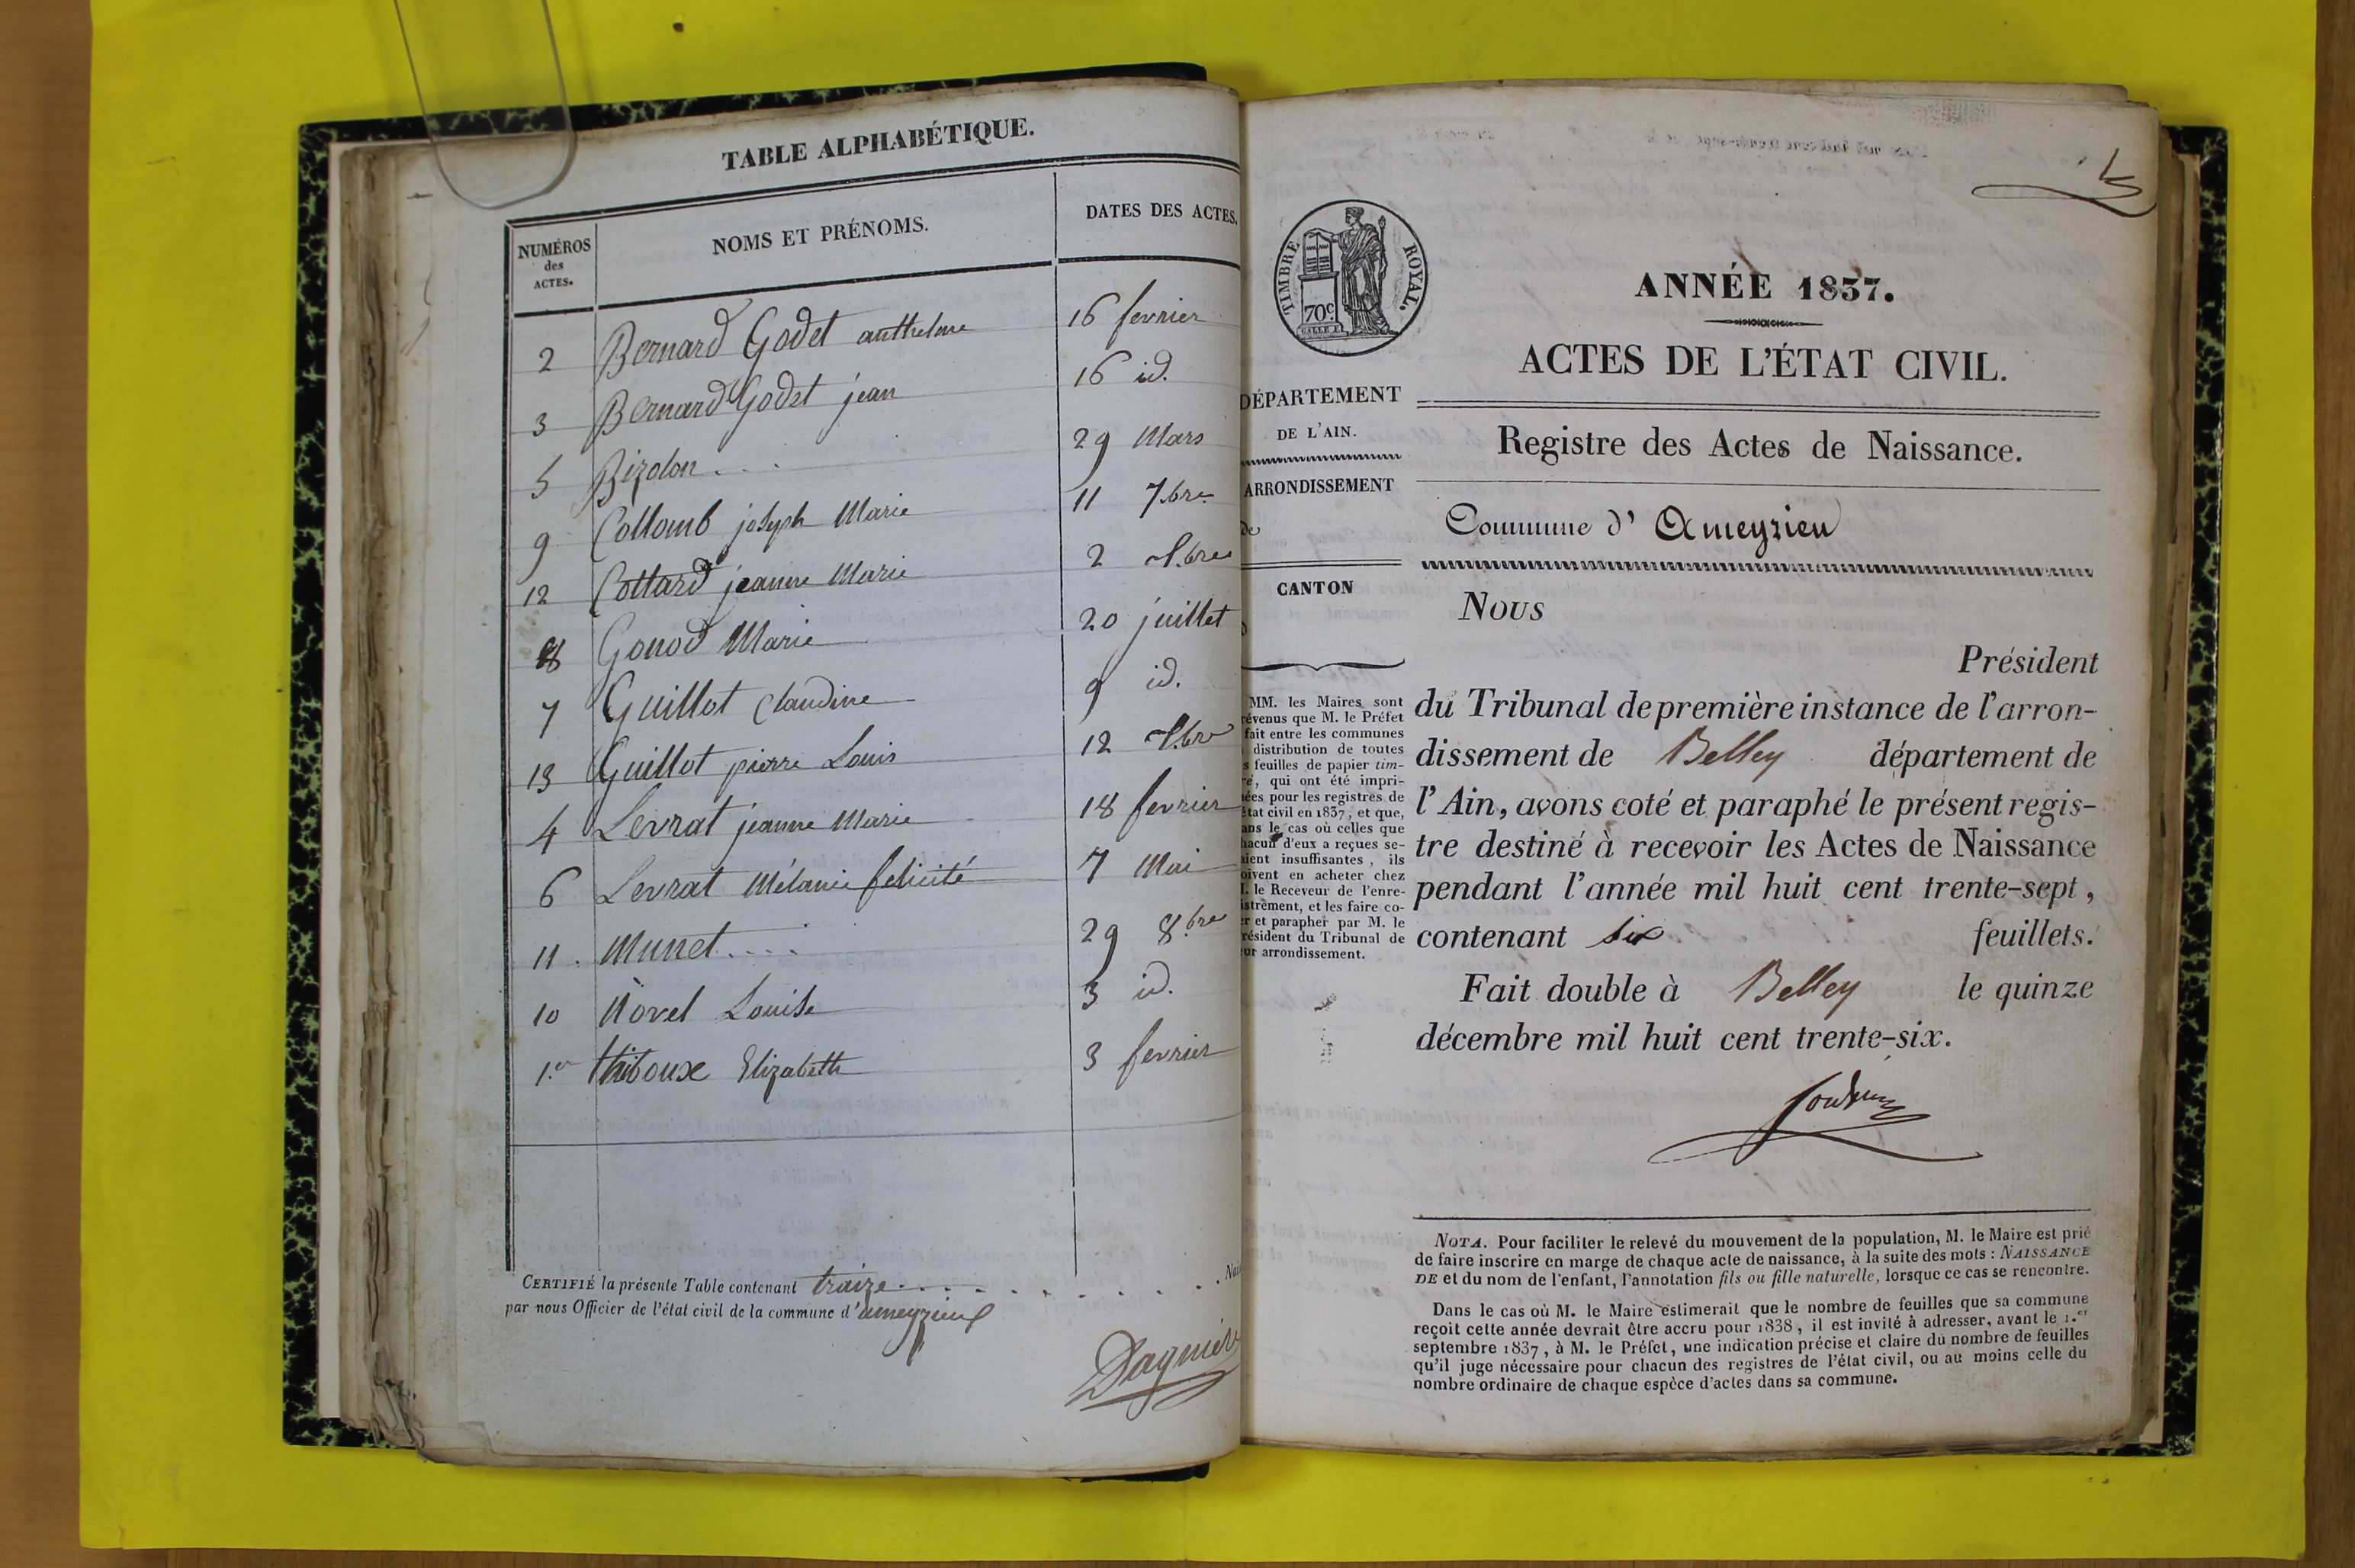 TABLE ALPHABÉTIQUE.
NUMÉROS des ACTES. NOMS ET PRÉNOMS. DATES DES ACTES.
2 Bernard Godet anthelme 16 fevrier
3 Bernard Godet jean 16 id.
5 Bizolon.... 29 Mars
9 Collomb joseph Marie 11 7.bre
12 Cottard jeanne Marie 2
8 Gonod Marie 20 juillet
7 Guillot Claudine 9 id.
13 Guillot pierre Louis 12
4 Levrat jeanne Marie 18 fevrier
6 Levrat Mélanie felicité 7 Mai
11. Munet.... 29 8.bre
10 Novel Louise 3 id.
1.er thiboux Elizabeth 3 fevrier
CERTIFIÉ la présente Table contenant traize
par nous Officier de l'état civil de la commune d'ameyzieux
TIMBRE ROYAL.
70c.
ANNÉE 1837.
ACTES DE L'ÉTAT CIVIL.
Registre des Actes de Naissance.
Commune d' Ameyzieu
DÉPARTEMENT
DE L'AIN.
ARRONDISSEMENT
de
CANTON
MM. les Maires sont
évenus que M. le Préfet
fait entre les communes
distribution de toutes
s feuilles de papier tim-
ré, qui ont été impri-
ées pour les registres de
état civil en 1837, et que,
ans le cas où celles que
hacun d'eux a reçues se-
aient insuffisantes, ils
oivent en acheter chez
I. le Receveur de l'enre-
istrement, et les faire co-
er et parapher par M. le
résident du Tribunal de
ur arrondissement.
Nous
Président
du Tribunal de première instance de l'arron-
dissement de Belley département de
l'Ain, avons coté et paraphé le présent regis-
tre destiné à recevoir les Actes de Naissance
pendant l'année mil huit cent trente-sept,
contenant six feuillets.
Fait double à Belley le quinze
décembre mil huit cent trente-six.
NOTA. Pour faciliter le relevé du mouvement de la population, M. le Maire est prié
de faire inscrire en marge de chaque acte de naissance, à la suite des mots : NAISSANCE
DE et du nom de l'enfant, l'annotation fils ou fille naturelle, lorsque ce cas se rencontre.
Dans le cas où M. le Maire estimerait que le nombre de feuilles que sa commune
reçoit cette année devrait être accru pour 1838, il est invité à adresser, avant le 1.er
septembre 1837, à M. le Préfet, une indication précise et claire du nombre de feuilles
qu'il juge nécessaire pour chacun des registres de l'état civil, ou au moins celle du
nombre ordinaire de chaque espèce d'actes dans sa commune.